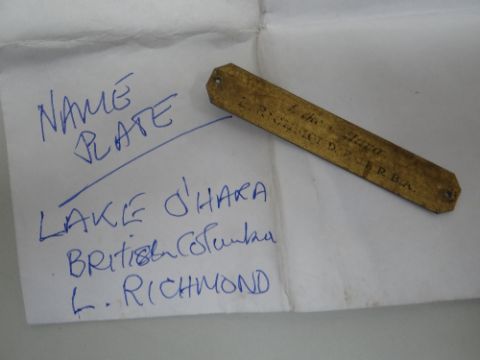 NAME
PLATE
LAKE O'HARA
BRITISH Columbia
L. RICHMOND
Lake O'Hara
L. RICHMOND, R.B.A.